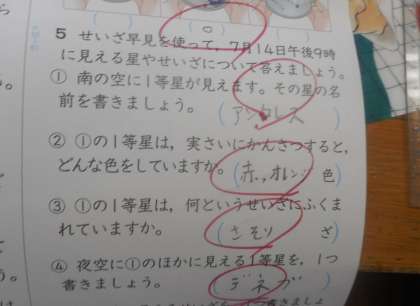 5 せいざ早見を使って，7月14日午後9時
に見える星やせいざについて答えましょう。
① 南の空に1等星が見えます。その星の名
前を書きましょう。
(アンタレス)
② ①の1等星は，実さいにかんさつすると，
どんな色をしていますか。(赤，オレンジ 色)
③ ①の1等星は，何というせいざにふくま
れていますか。(さそり ざ)
④ 夜空に①のほかに見える1等星を，1つ
書きましょう。(デネブ)